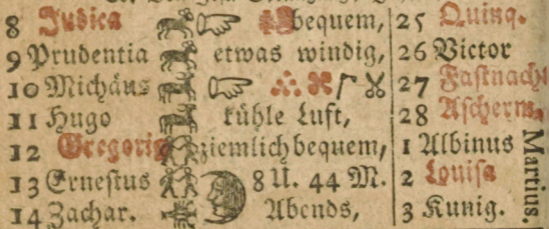 8 Judica bequem, 25 Quinq.
9 Prudentia etwas windig, 26 Victor
10 Michäus 27 Fastnacht
11 Hugo kühle Luft, 28 Ascherm.
12 Gregorius ziemlich bequem, 1 Albinus
13 Ernestus 8 U. 44 M. 2 Louisa
14 Zachar. Abends, 3 Kunig.
Martius.